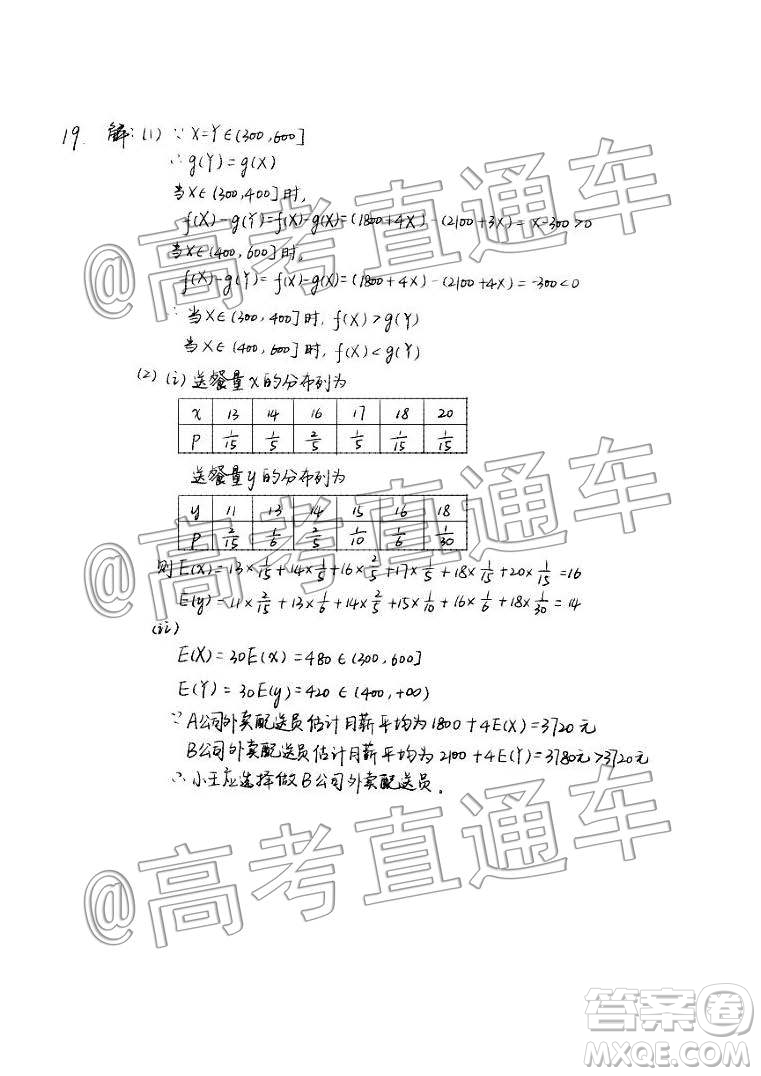 19. 解:(1) ∵X=Y∈(300,600]
∴g(Y)=g(X)
当X∈(300,400]时,
f(X)-g(Y)=f(X)-g(X)=(1800+4X)-(2100+3X)=X-300>0
当X∈(400,600]时,
f(X)-g(Y)=f(X)-g(X)=(1800+4X)-(2100+4X)=-300<0
∴当X∈(300,400]时,f(X)>g(Y)
当X∈(400,600]时,f(X)<g(Y)
(2)(i)送餐量x的分布列为
x 13 14 16 17 18 20
P 1/15 1/5 2/5 1/5 1/15 1/15
送餐量y的分布列为
y 11 13 14 15 16 18
P 2/15 1/6 2/5 1/10 1/6 1/30
则E(x)=13×1/15+14×1/5+16×2/5+17×1/5+18×1/15+20×1/15=16
E(y)=11×2/15+13×1/6+14×2/5+15×1/10+16×1/6+18×1/30=14
(ii)
E(X)=30E(x)=480∈(300,600]
E(Y)=30E(y)=420∈(400,+∞)
∵A公司外卖配送员估计月薪平均为1800+4E(X)=3720元
B公司外卖配送员估计月薪平均为2100+4E(Y)=3780元>3720元
∴小王应选择做B公司外卖配送员.
@高考直通车
@高考直通车
@高考直通车
答案卷
MXQE.COM